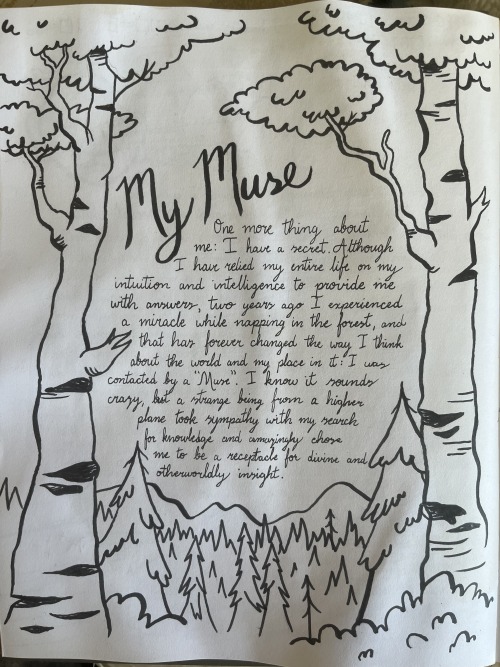 My Muse
One more thing about
me: I have a secret. Although
I have relied my entire life on my
intuition and intelligence to provide me
with answers, two years ago I experienced
a miracle while napping in the forest, and
that has forever changed the way I think
about the world and my place in it: I was
contacted by a "Muse". I know it sounds
crazy, but a strange being from a higher
plane took sympathy with my search
for knowledge and amusingly chose
me to be a receptacle for divine and
otherworldly insight.